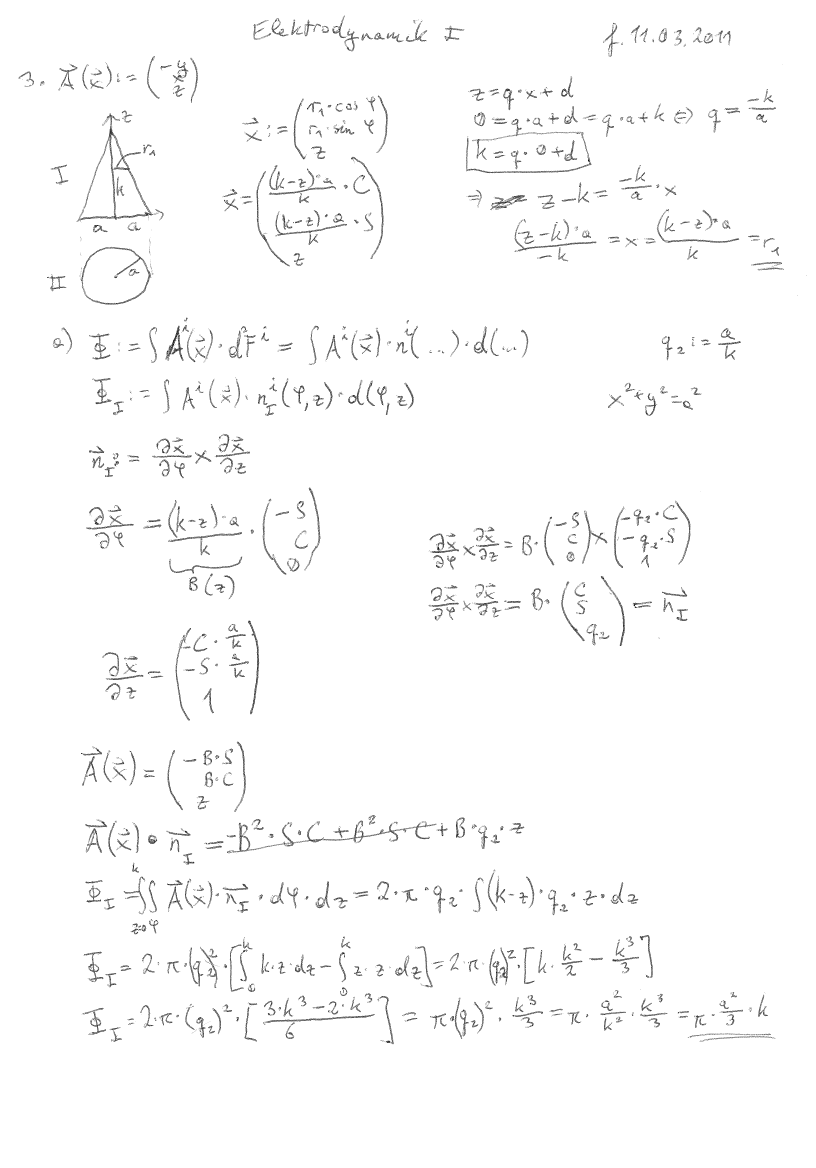 Elektrodynamik I
f. 11.03.2011
3. A⃗(x⃗) := (-y x z)
z
r₁
I
k
a a
II
a
x⃗ := (r₁·cos φ r₁·sin φ z)
x⃗ = ((k-z)·a/k · C (k-z)·a/k · S z)
z = q·x + d
0 = q·a + d = q·a + k ⇔ q = -k/a
k = q·0 + d
⇒ z - k = -k/a · x
(z-k)·a/-k = x = (k-z)·a/k = r₁
a) Φ := ∫ Aⁱ(x⃗)·d²Fⁱ = ∫ Aⁱ(x⃗)·nⁱ(...)·d(...)
q₂ := a/k
Φ_I := ∫ Aⁱ(x⃗)·n_Iⁱ(φ,z)·d(φ,z)
x² + y² = a²
n⃗_I := ∂x⃗/∂φ × ∂x⃗/∂z
∂x⃗/∂φ = (k-z)·a/k · (-S C 0)
B(z)
∂x⃗/∂φ × ∂x⃗/∂z = B·(-S C 0) × (-q₂·C -q₂·S 1)
∂x⃗/∂φ × ∂x⃗/∂z = B·(C S q₂) = n⃗_I
∂x⃗/∂z = (-C·a/k -S·a/k 1)
A⃗(x⃗) = (-B·S B·C z)
A⃗(x⃗) • n⃗_I = -B²·S·C + B²·S·C + B·q₂·z
Φ_I = ∫∫ A⃗(x⃗)·n⃗_I·dφ·dz = 2·π·q₂·∫(k-z)·q₂·z·dz
k
z=0 φ
Φ_I = 2·π·(q₂)²·[∫₀ᵏ k·z·dz - ∫₀ᵏ z·z·dz] = 2·π·(q₂)²·[k·k²/2 - k³/3]
Φ_I = 2·π·(q₂)²·[3·k³-2·k³/6] = π·(q₂)²·k³/3 = π·a²/k²·k³/3 = π·a²/3·k